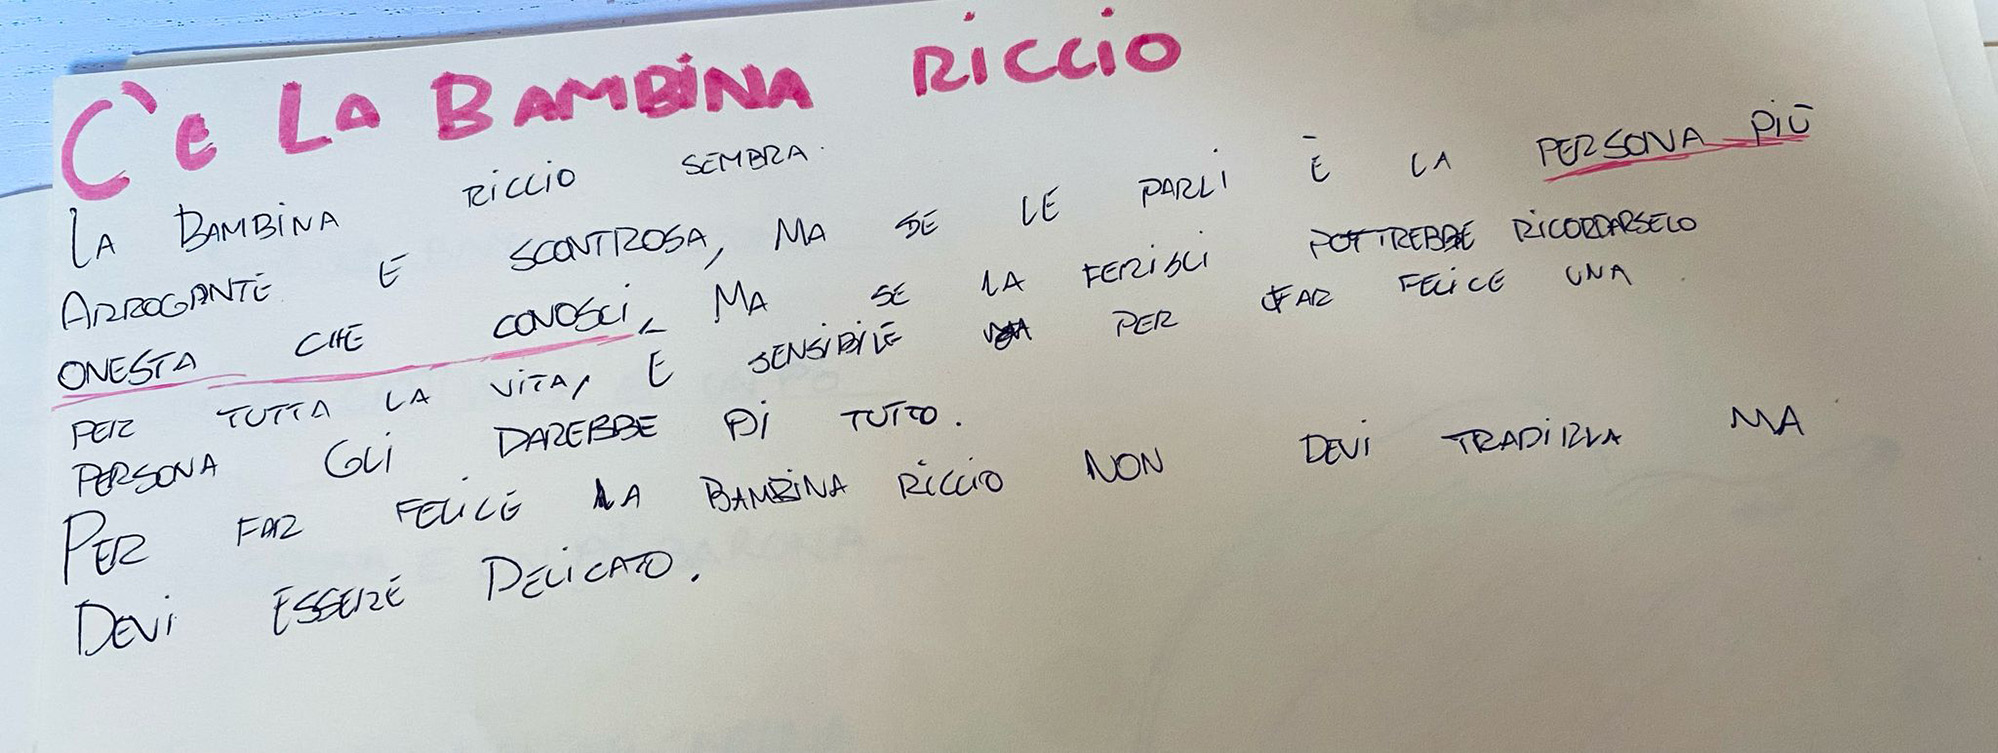 C'È LA BAMBINA RICCIO
LA BAMBINA RICCIO SEMBRA
ARROGANTE E SCONTROSA, MA SE LE PARLI È LA PERSONA PIÙ
ONESTA CHE CONOSCI, MA SE LA FERISCI POTTREBBE RICORDARSELO
PER TUTTA LA VITA, E SENSIBILE MA PER FAR FELICE UNA
PERSONA GLI DAREBBE DI TUTTO.
PER FAR FELICE LA BAMBINA RICCIO NON DEVI TRADIRLA MA
DEVI ESSERE DELICATO.